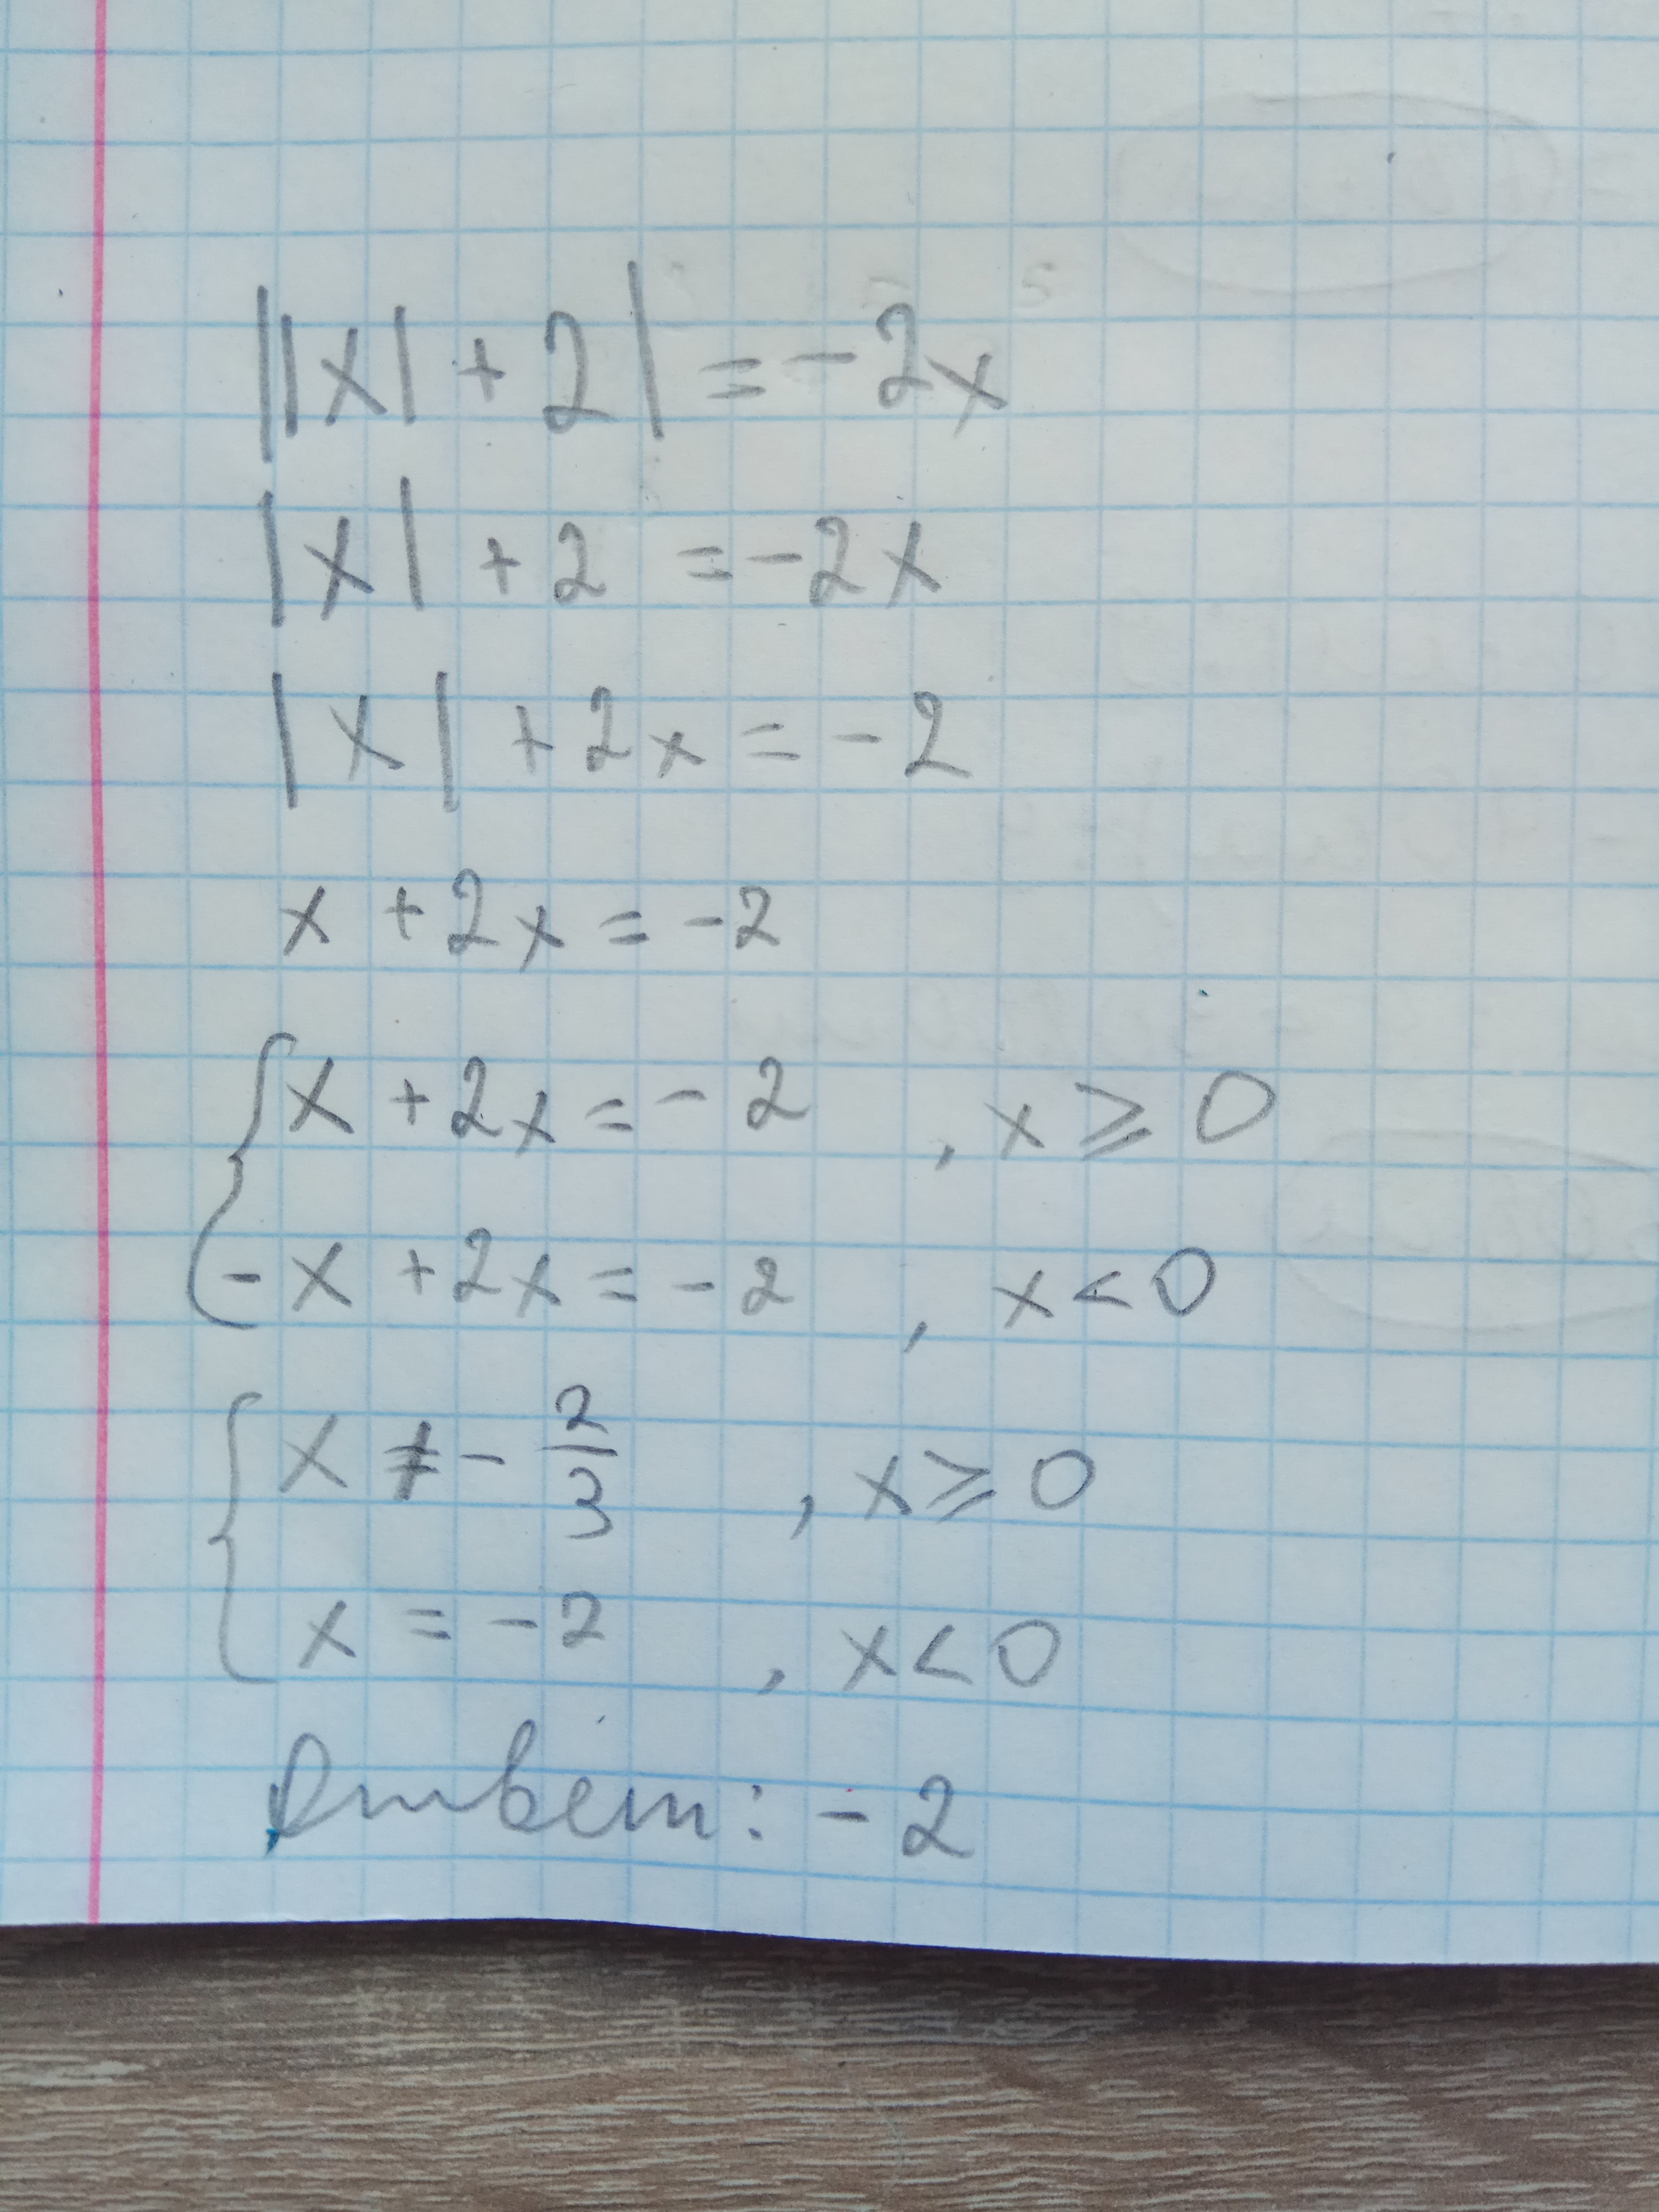 ||x| + 2| = -2x
|x| + 2 = -2x
|x| + 2x = -2
x + 2x = -2
{ x + 2x = -2 , x ≥ 0
-x + 2x = -2 , x < 0
{ x ≠ - 2/3 , x ≥ 0
x = -2 , x < 0
Ответ: -2